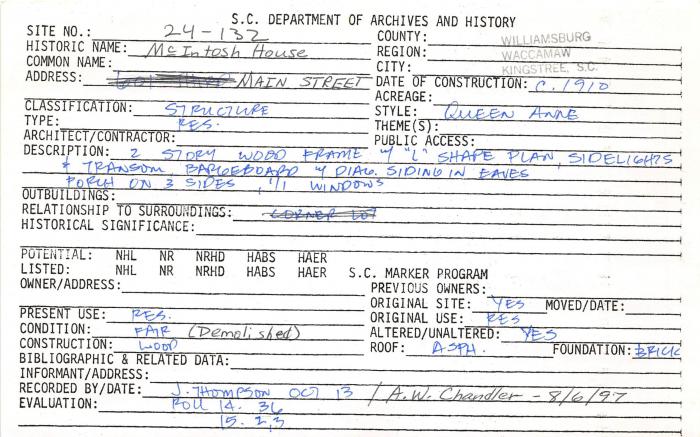 S.C. DEPARTMENT OF ARCHIVES AND HISTORY
SITE NO.: 24-132 COUNTY: WILLIAMSBURG
HISTORIC NAME: McIntosh House REGION: WACCAMAW
COMMON NAME: CITY: KINGSTREE, S.C.
ADDRESS: MAIN STREET DATE OF CONSTRUCTION: C. 1910
ACREAGE:
CLASSIFICATION: STRUCTURE STYLE: QUEEN ANNE
TYPE: RES. THEME(S):
ARCHITECT/CONTRACTOR: PUBLIC ACCESS:
DESCRIPTION: 2 STORY WOOD FRAME W/ "L" SHAPE PLAN, SIDELIGHTS
& TRANSOM, BARGEBOARD W/ DIAG. SIDING IN EAVES
PORCH ON 3 SIDES, 1/1 WINDOWS
OUTBUILDINGS:
RELATIONSHIP TO SURROUNDINGS: CORNER LOT
HISTORICAL SIGNIFICANCE:
POTENTIAL: NHL NR NRHD HABS HAER
LISTED: NHL NR NRHD HABS HAER S.C. MARKER PROGRAM
OWNER/ADDRESS: PREVIOUS OWNERS:
ORIGINAL SITE: YES MOVED/DATE:
PRESENT USE: RES. ORIGINAL USE: RES
CONDITION: FAIR (Demolished) ALTERED/UNALTERED: YES
CONSTRUCTION: WOOD ROOF: ASPH. FOUNDATION: BRICK
BIBLIOGRAPHIC & RELATED DATA:
INFORMANT/ADDRESS:
RECORDED BY/DATE: J. THOMPSON OCT 13 / A.W. Chandler - 8/6/97
EVALUATION: ROLL 14. 36
15. 2,3